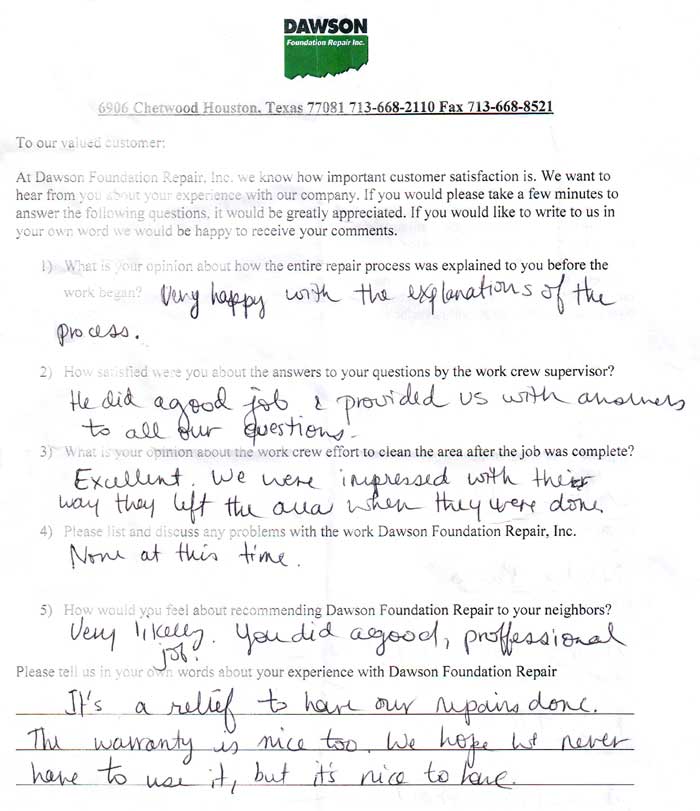 DAWSON
Foundation Repair Inc.
6906 Chetwood Houston, Texas 77081 713-668-2110 Fax 713-668-8521
To our valued customer:
At Dawson Foundation Repair, Inc. we know how important customer satisfaction is. We want to
hear from you about your experience with our company. If you would please take a few minutes to
answer the following questions, it would be greatly appreciated. If you would like to write to us in
your own word we would be happy to receive your comments.
1) What is your opinion about how the entire repair process was explained to you before the
work began? Very happy with the explanations of the
process.
2) How satisfied were you about the answers to your questions by the work crew supervisor?
He did a good job & provided us with answers
to all our questions.
3) What is your opinion about the work crew effort to clean the area after the job was complete?
Excellent. We were impressed with the
way they left the area when they were done.
4) Please list and discuss any problems with the work Dawson Foundation Repair, Inc.
None at this time.
5) How would you feel about recommending Dawson Foundation Repair to your neighbors?
Very likely. You did a good, proffessional
job!
Please tell us in your own words about your experience with Dawson Foundation Repair
It's a relief to have our repairs done.
The warranty is nice too. We hope we never
have to use it, but it's nice to have.